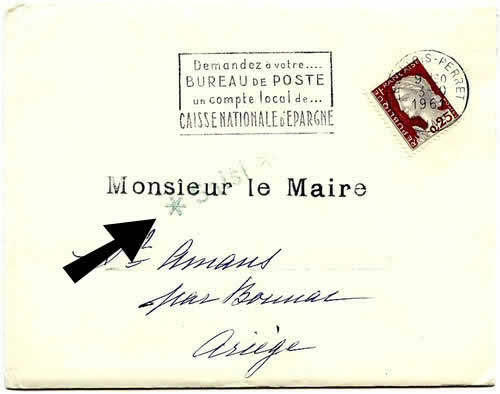 Demandez à votre....
BUREAU DE POSTE
un compte local de...
CAISSE NATIONALE d'EPARGNE
OIS-PERRET
REPUBLIQUE FRANÇAISE
0,25
Monsieur le Maire
St Amans
par Bonnac
Ariège